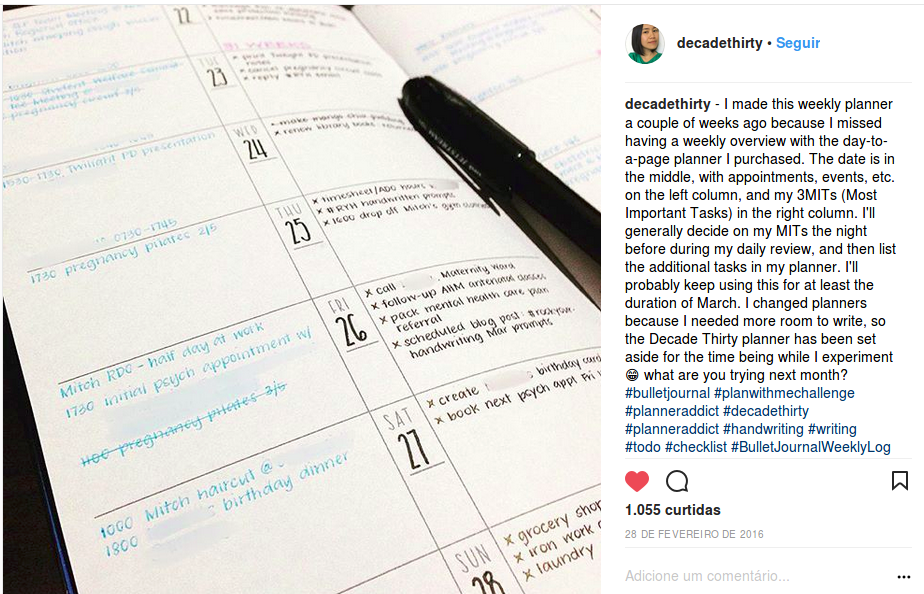 22
31 WEEKS
TUE
23
x print Twilight PD presentation
notes
x cancel pregnancy
x reply
pregnancy circuit 2/5
WED
24
make mango chia pudding
x renew library books
1530-1730 Twilight PD presentation
THU
25
x timesheet/ADO hours
x #RYH handwritten prompts
x 1600 drop off Mitch's gym
0730-1745
1730 pregnancy pilates 2/5
FRI
26
x call Maternity Ward
x follow-up AHM antenatal classes
x pack mental health care plan
referral
x scheduled blog post: #rockyour-
handwriting Mar prompts
Mitch RDO - half day at work
1730 initial psych appointment w/
1100 pregnancy pilates 3/5
SAT
27
x create birthday card
x book next psych appt Fri
1000 Mitch haircut @
1800 birthday dinner
SUN
28
x grocery shop
x iron work
x laundry
decadethirty • Seguir
decadethirty - I made this weekly planner
a couple of weeks ago because I missed
having a weekly overview with the day-to-
a-page planner I purchased. The date is in
the middle, with appointments, events, etc.
on the left column, and my 3MITs (Most
Important Tasks) in the right column. I'll
generally decide on my MITs the night
before during my daily review, and then list
the additional tasks in my planner. I'll
probably keep using this for at least the
duration of March. I changed planners
because I needed more room to write, so
the Decade Thirty planner has been set
aside for the time being while I experiment
😁 what are you trying next month?
#bulletjournal #planwithmechallenge
#planneraddict #decadethirty
#planneraddict #handwriting #writing
#todo #checklist #BulletJournalWeeklyLog
1.055 curtidas
28 DE FEVEREIRO DE 2016
Adicione um comentário...